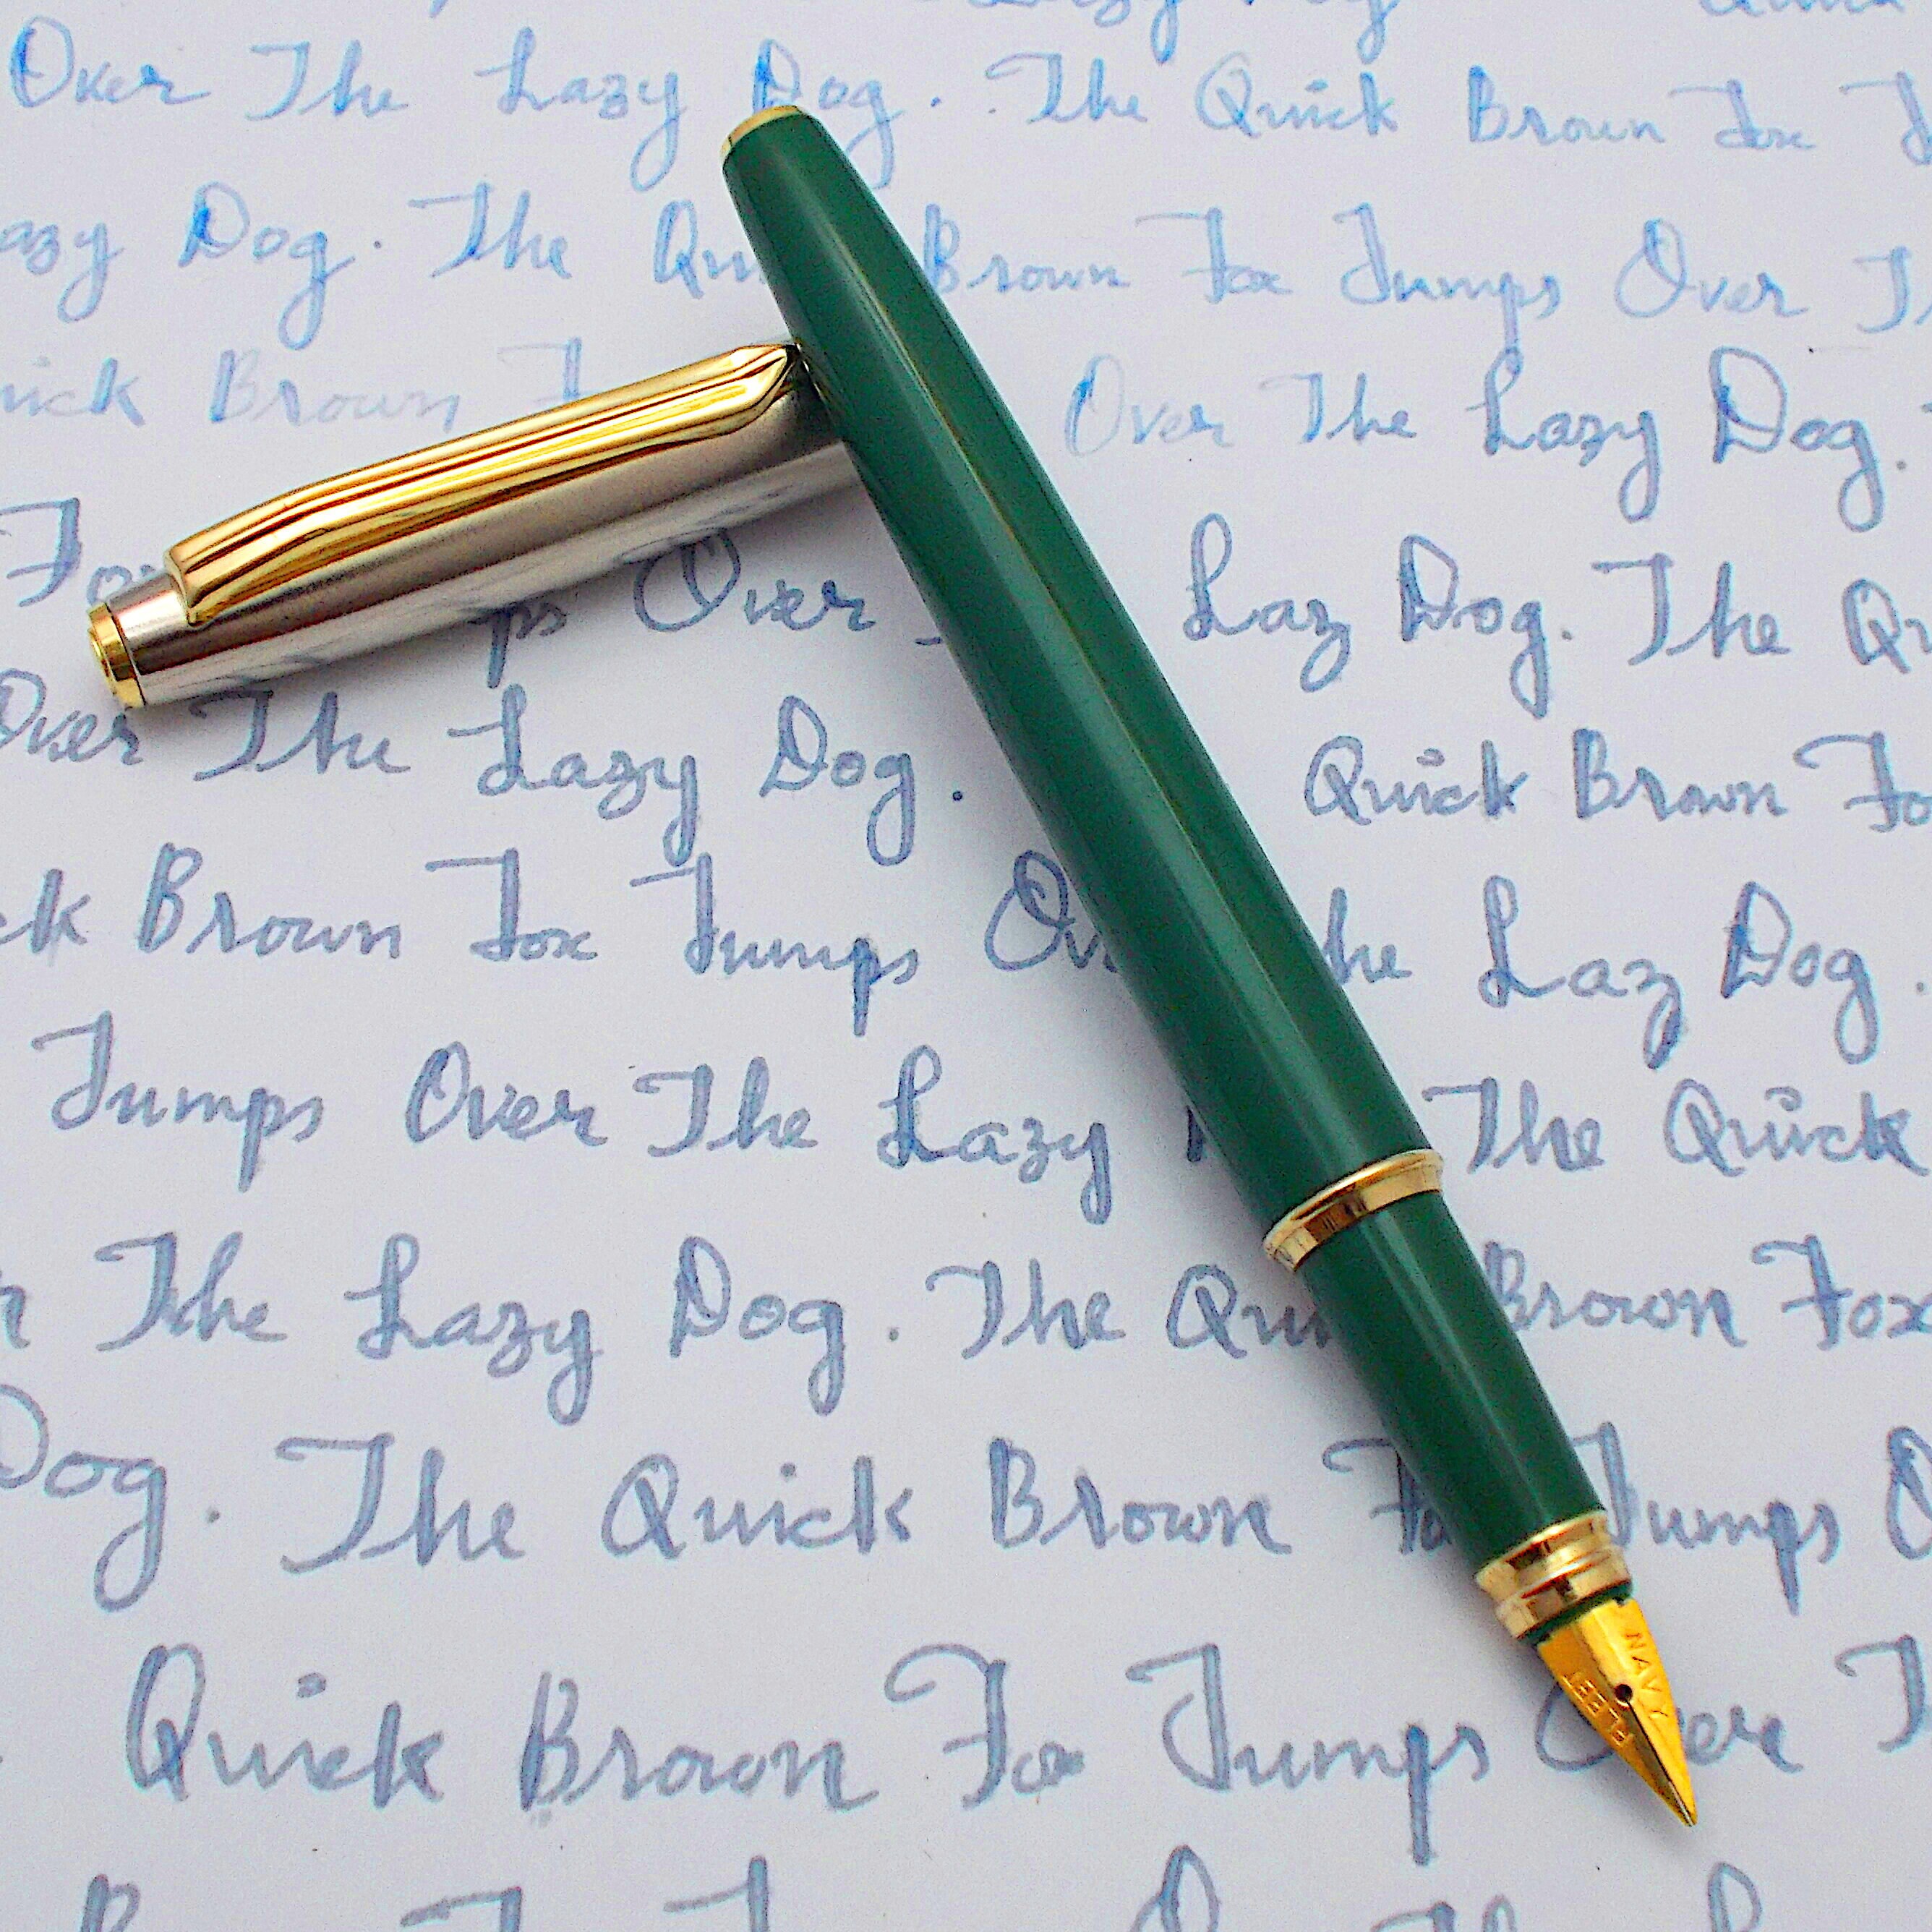 Lazy Dog
Over The Lazy Dog. The Quick Brown Fox
azy Dog. The Qui Brown Fox Jumps Over T
uick Brown F Over The Lazy Dog.
Fox ps Over Laz Dog. The Qu
Over The Lazy Dog. Quick Brown Fo
ck Brown Fox Jumps Ov he Laz Dog.
Jumps Over The Lazy The Quick
r The Lazy Dog. The Qui Brown Fox
Dog. The Quick Brown Fo Jumps O
Quick Brown Fox Jumps Over T
NAVY
FLEET